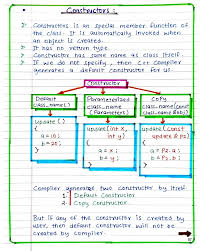 Constructors :-
> Constructors is an special member function of
the class. It is automatically invoked when
an object is created.
> It has no return type.
> Constructor has same name as class itself.
> If we do not specify, then C++ Compiler
generates a default constructor for us.
Constructor
Default
class_name()
Parameterized
class_name(parameters)
Copy
class_name(const
class_name &obj)
update()
{
a = 10;
b = 20;
}
update(int x,
int y)
{
a = x;
b = y;
}
update(const
update & P2)
{
a = P2.a;
b = P2.b;
}
Compiler generates two constructor by itself.
1- Default Constructor
2- Copy Constructor
But if any of the constructor is created by
user, then default constructor will not be
created by compiler.